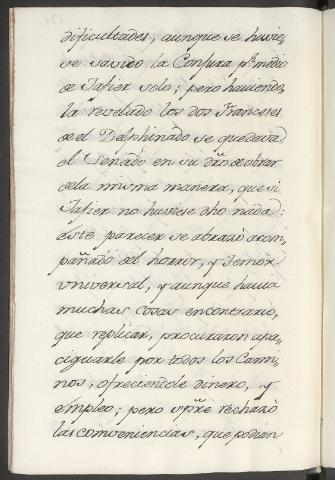 dificultades, aunque se huvie,
se savido la Conjura pr. medio
de Jafier solo; pero haviendo
la revelado los dos Franceses
de el Delphinado se quedava
el Senado en su dro. de obrar
de la misma manera, que si
Jafier no huviese dho nada:
este parecer se abrazó acom,
pañado del horror, y temor
vniversal, y aunque havia
muchas cosas en contrario,
que replicar, procuraron apa,
ciguarle por todos los Cami,
nos, ofreciendole dinero, y
empleo; pero spre. rechazó
las conveniencias, que podian